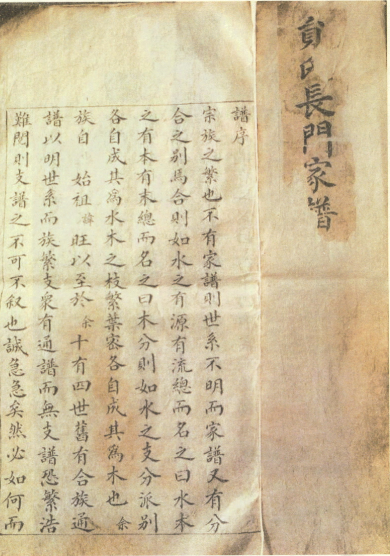 貟氏長門家譜
譜序
宗族之繁也不有家譜則世系不明而家譜又有分
合之别焉合則如水之有源有流總而名之曰水木
之有本有末總而名之曰木分則如水之支分派别
各自成其為水木之枝繁葉密各自成其為木也余
族自始祖諱旺以至於余十有四世舊有合族通
譜以明世系而族繁支衆有通譜而無支譜恐繁浩
難閱則支譜之不可不叙也誠急急矣然必如何而